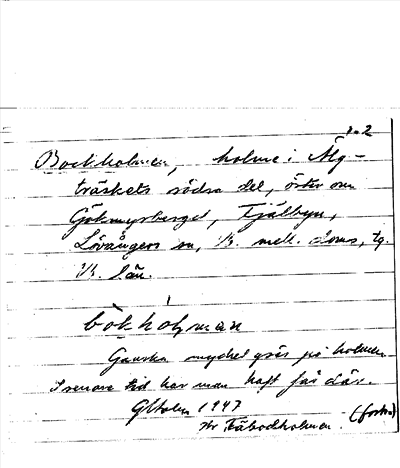 1.2
Bockholmen, holme i Älg-
träskets södra del, öster om
Gökmyrberget, Fjälbyn,
Lövångers sn, Vb. mell. doms, tg.
Vb. län.
bòkhólman
Ganska mycket gräs på holmen.
I senare tid har man haft får där.
1947
Fäbodholmen. (forts.)